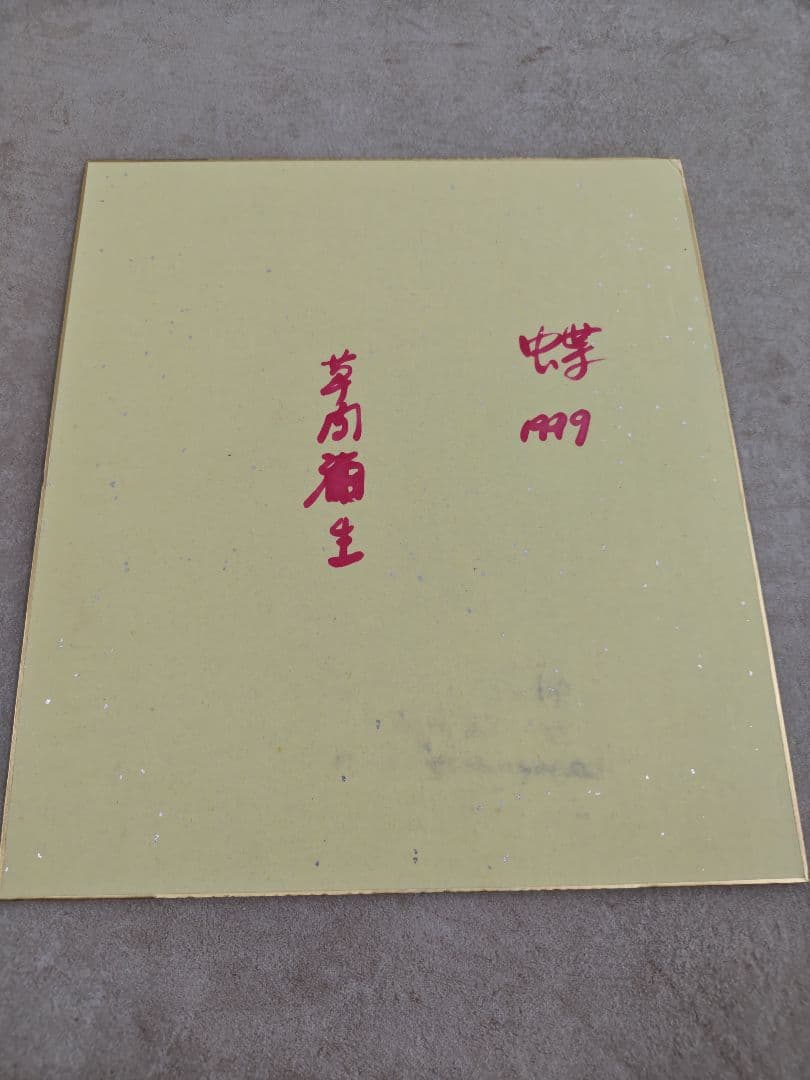 蝶
1999
草間彌生